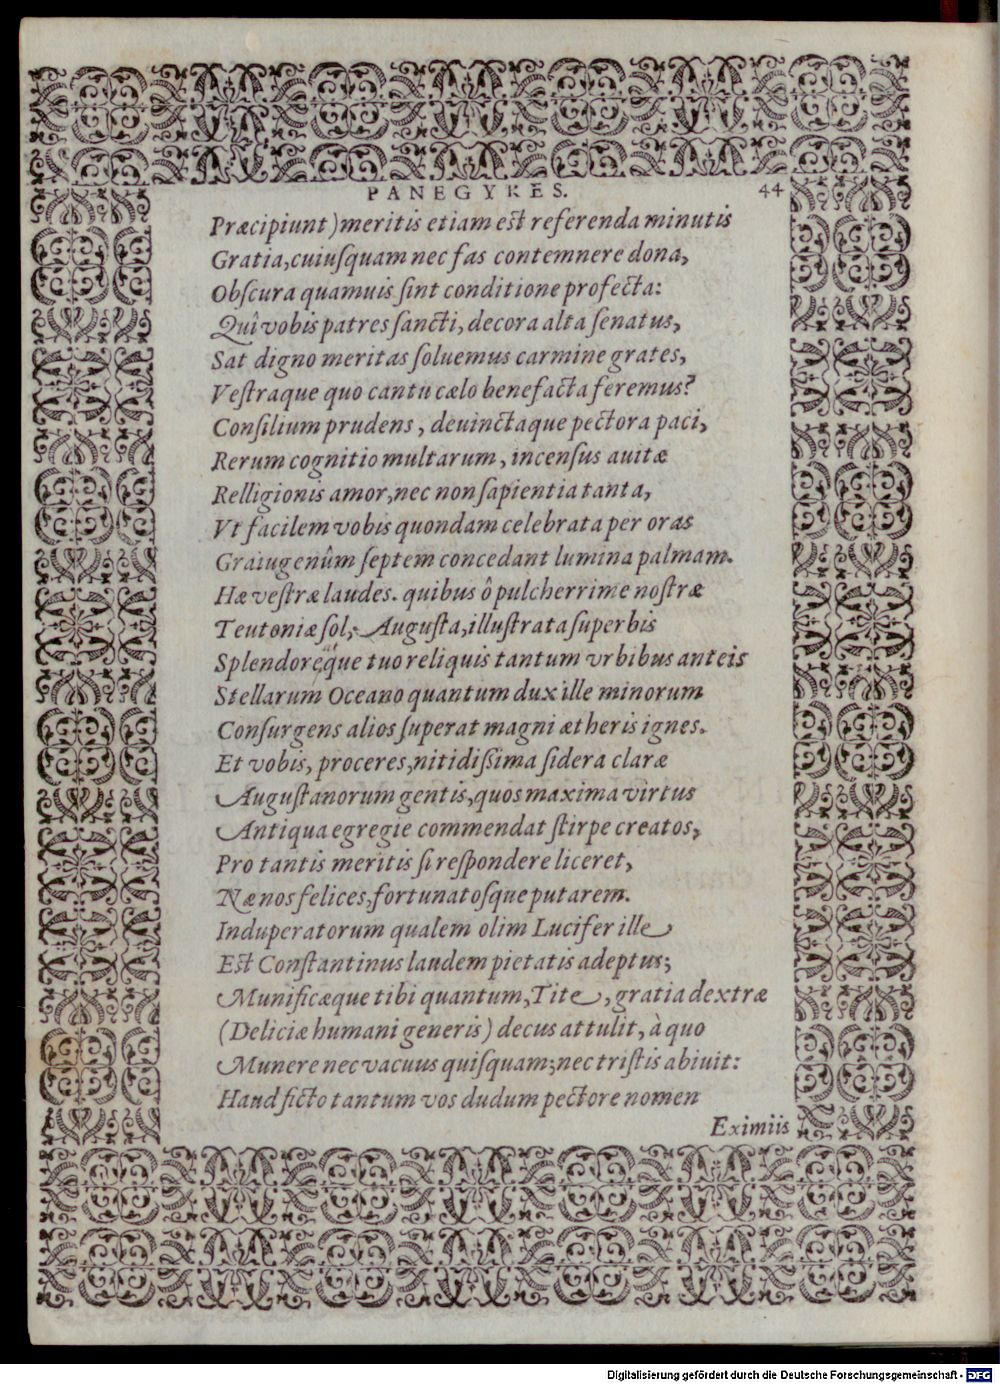 PANEGYRES. 44
Præcipiunt) meritis etiam est referenda minutis
Gratia, cuiuſquam nec fas contemnere dona,
Obſcura quamuis ſint conditione profecta:
Quî vobis patres ſancti, decora alta ſenatus,
Sat digno meritas ſoluemus carmine grates,
Veſtraque quo cantu cælo benefacta feremus?
Conſilium prudens, deuinctaque pectora paci,
Rerum cognitio multarum, incenſus auitæ
Relligionis amor, nec non ſapientia tanta,
Vt facilem vobis quondam celebrata per oras
Graiugenûm ſeptem concedant lumina palmam.
Hæ veſtræ laudes. quibus ô pulcherrime noſtræ
Teutoniæ ſol, Auguſta, illuſtrata ſuperbis
Splendoreq́ue tuo reliquis tantum vrbibus anteis
Stellarum Oceano quantum dux ille minorum
Conſurgens alios ſuperat magni ætheris ignes.
Et vobis, proceres, nitidiſſima ſidera claræ
Auguſtanorum gentis, quos maxima virtus
Antiqua egregie commendat ſtirpe creatos,
Pro tantis meritis ſi reſpondere liceret,
Næ nos felices, fortunatoſque putarem.
Induperatorum qualem olim Lucifer ille
Est Conſtantinus laudem pietatis adeptus;
Munificæque tibi quantum, Tite, gratia dextræ
(Deliciæ humani generis) decus attulit, à quo
Munere nec vacuus quiſquam; nec triſtis abiuit:
Haud ficto tantum vos dudum pectore nomen
Eximiis
Digitalisierung gefördert durch die Deutsche Forschungsgemeinschaft - DFG